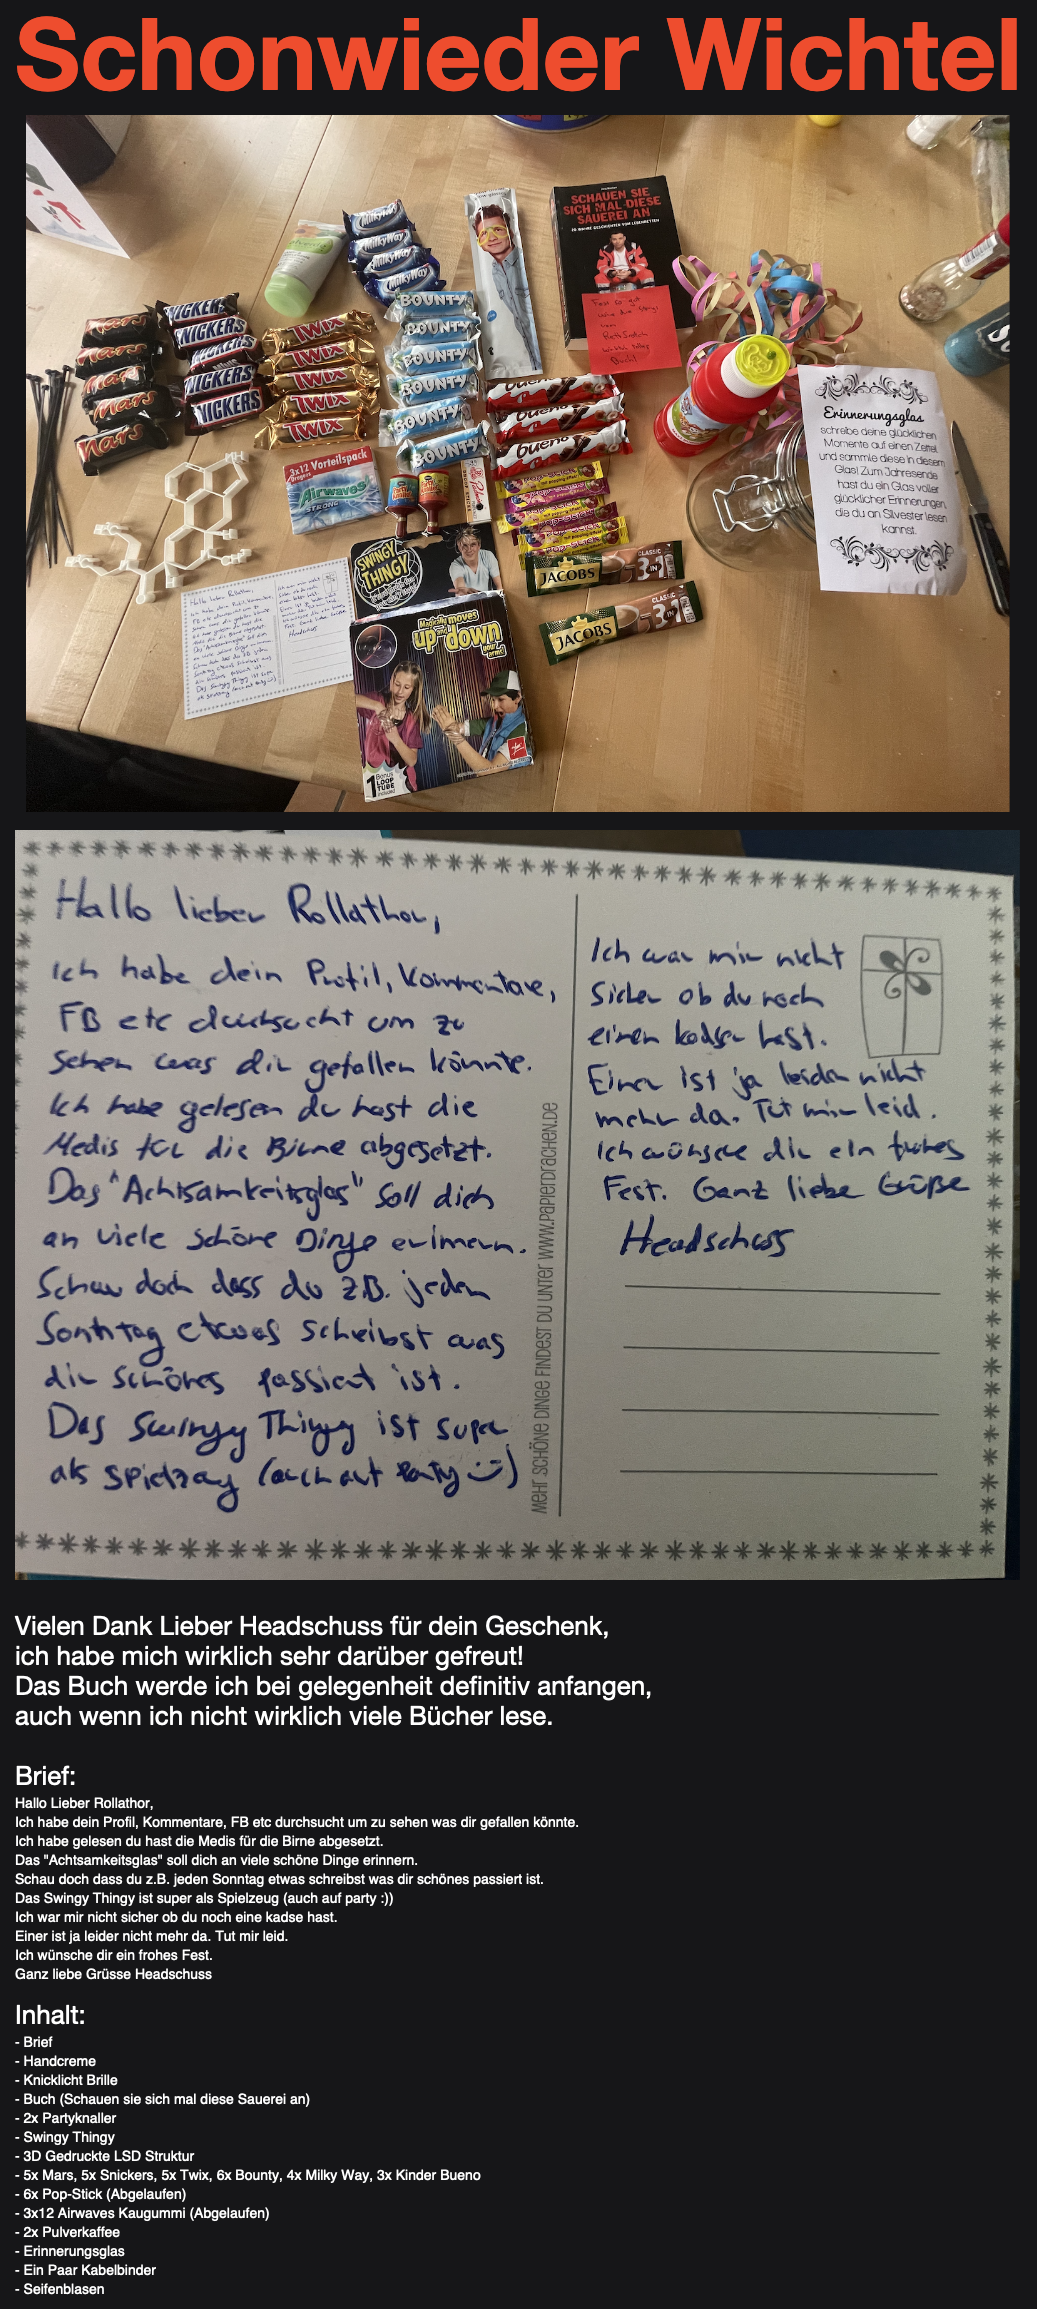 Schonwieder Wichtel
Mars
Mars
Mars
Mars
Mars
SNICKERS
SNICKERS
SNICKERS
SNICKERS
SNICKERS
TWIX
TWIX
TWIX
TWIX
TWIX
MilkyWay
MilkyWay
MilkyWay
MilkyWay
BOUNTY
BOUNTY
BOUNTY
BOUNTY
BOUNTY
BOUNTY
SCHAUEN SIE
SICH MAL DIESE
SAUEREI AN
20 WAHRE GESCHICHTEN VOM LEBENRETTEN
bueno
bueno
bueno
3x12 Vorteilspack
Airwaves
STRONG
SWINGY
THINGY
Magically moves
up and down
your arms!
1 Bonus
LOOP
TUBE
included
JACOBS
CLASSIC
3in1
JACOBS
CLASSIC
3in1
Erinnerungsglas
schreibe deine glücklichen
Momente auf einen Zettel
und sammle diese in diesem
Glas! Zum Jahresende
hast du ein Glas voller
glücklicher Erinnerungen,
die du an Silvester lesen
kannst.
Hallo lieber Rollathor,
Ich habe dein Profil, Kommentare,
FB etc durchsucht um zu
sehen was dir gefallen könnte.
Ich habe gelesen du hast die
Medis für die Birne abgesetzt.
Das "Achtsamkeitsglas" soll dich
an viele schöne Dinge erinnern.
Schau doch dass du z.B. jeden
Sonntag etwas scheibst was
dir schönes passiert ist.
Das Swingy Thingy ist super
als Spielzeug (auch auf Party :))
MEHR SCHÖNE DINGE FINDEST DU UNTER WWW.PAPIERDRACHEN.DE
Ich war mir nicht
sicher ob du noch
einen kadse hast.
Einer ist ja leider nicht
mehr da. Tut mir leid.
Ich wünsche dir ein frohes
Fest. Ganz liebe Grüße
Headschuss
Vielen Dank Lieber Headschuss für dein Geschenk,
ich habe mich wirklich sehr darüber gefreut!
Das Buch werde ich bei gelegenheit definitiv anfangen,
auch wenn ich nicht wirklich viele Bücher lese.
Brief:
Hallo Lieber Rollathor,
Ich habe dein Profil, Kommentare, FB etc durchsucht um zu sehen was dir gefallen könnte.
Ich habe gelesen du hast die Medis für die Birne abgesetzt.
Das "Achtsamkeitsglas" soll dich an viele schöne Dinge erinnern.
Schau doch dass du z.B. jeden Sonntag etwas schreibst was dir schönes passiert ist.
Das Swingy Thingy ist super als Spielzeug (auch auf party :))
Ich war mir nicht sicher ob du noch eine kadse hast.
Einer ist ja leider nicht mehr da. Tut mir leid.
Ich wünsche dir ein frohes Fest.
Ganz liebe Grüsse Headschuss
Inhalt:
- Brief
- Handcreme
- Knicklicht Brille
- Buch (Schauen sie sich mal diese Sauerei an)
- 2x Partyknaller
- Swingy Thingy
- 3D Gedruckte LSD Struktur
- 5x Mars, 5x Snickers, 5x Twix, 6x Bounty, 4x Milky Way, 3x Kinder Bueno
- 6x Pop-Stick (Abgelaufen)
- 3x12 Airwaves Kaugummi (Abgelaufen)
- 2x Pulverkaffee
- Erinnerungsglas
- Ein Paar Kabelbinder
- Seifenblasen